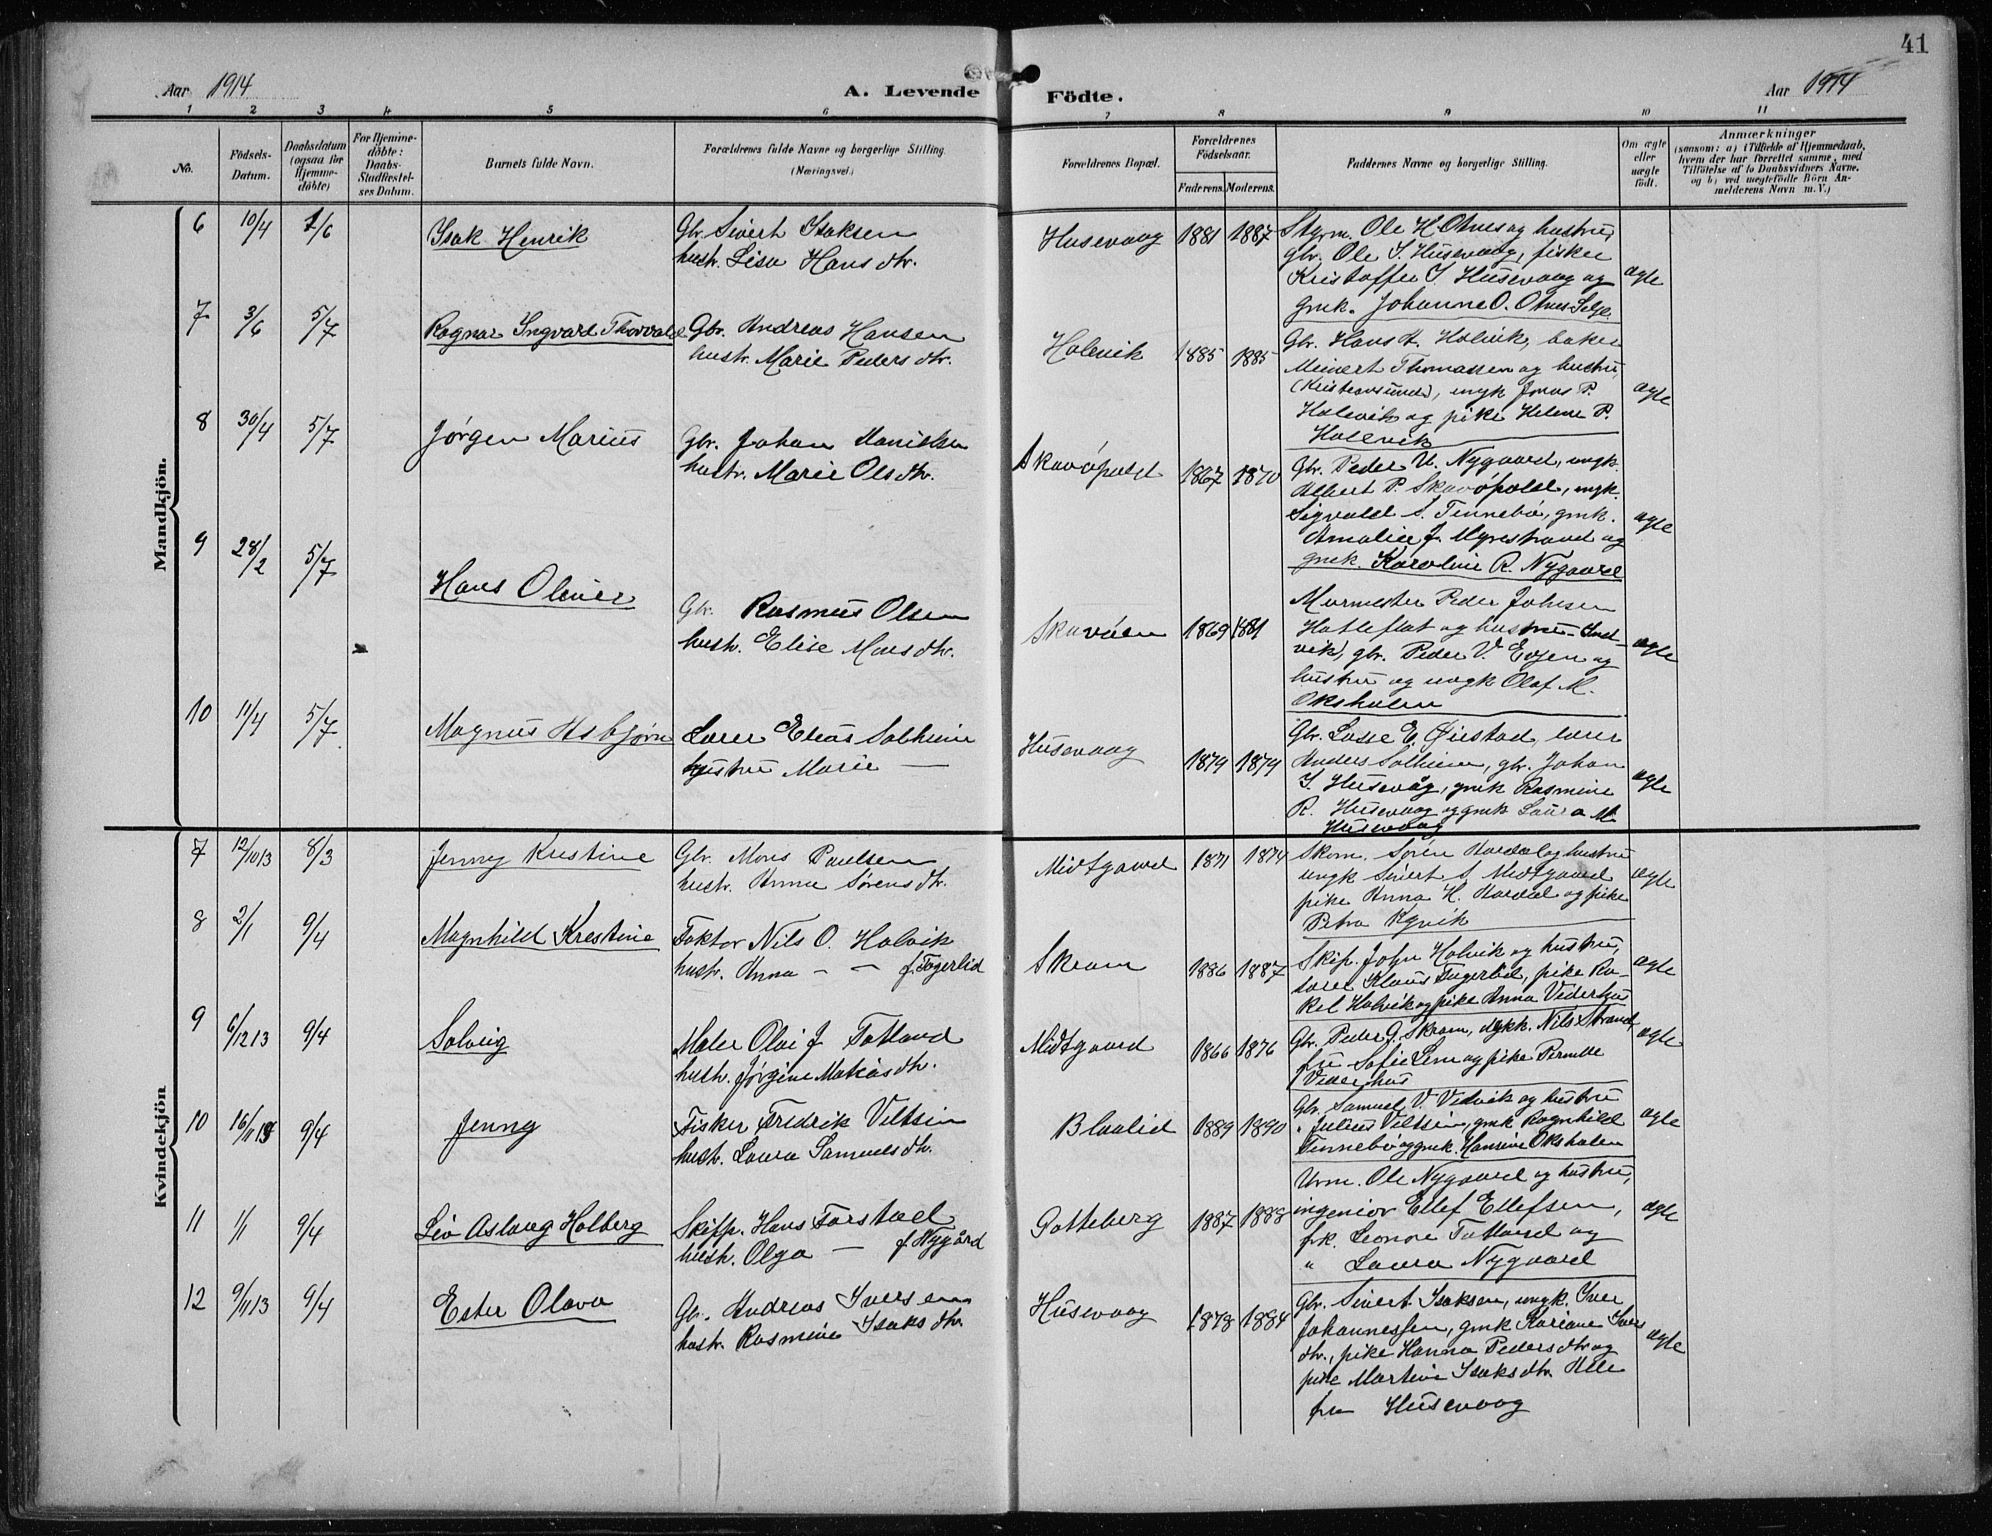 41
Aar 1914
A. Levende Födte.
Aar 1914
1 2 3 4 5 6 7 8 9 10 11
No.
Födsels-
Datum.
Daabsdatum
(ogsaa for
Hjemme-
döbte)
For Hjemme-
döbte:
Daabs-
Stadfæstel-
ses Datum.
Barnets fulde Navn.
Forældrenes fulde Navne og borgerlige Stilling.
(Næringsvei.)
Forældrenes Bopæl.
Forældrenes
Födselsaar.
Faderens. Moderens.
Faddernes Navne og borgerlige Stilling.
Om ægte
eller
uægte
födt.
Anmærkninger
(saasom: a) i Tilfælde af Hjemmedaab,
hvem der har forrettet samme, med
Tilföielse af to Daabsvidners Navne.
og b) ved uægtefödte Börn An-
melderens Navn m. V.)
Mandkjön.
6 10/4 1/6 Isak Henrik
Gbr. Sivert Isaksen
hustr. Lisa Hansdtr.
Husevaag 1881 1887
Styrm. Ole H. Otnes og hustru,
gbr. Ole S. Husevaag, fisker
Kristoffer S. Husevaag og
gmk. Johanne O. Otnes Selje
ægte
7 3/6 5/7 Ragnar Ingvard Thorvald
Gbr. Andreas Hansen
hustr. Marie Pedersdtr.
Holevik 1885 1885
Gbr. Hans A. Holvik, baker
Meinert Thomassen og hustru,
(Kristiansund), ungk Jonas P.
Holevik og pike Helene P.
Holevik
ægte
8 30/4 5/7 Jørgen Marius
Gbr. Johan
hustr. Marie Olsdtr.
Skavøpold 1867 1870
Gbr. Peder U. Nygaard, ungk.
Albert P. Skavøpold, ungk.
Sigvald S. Tennebø, gmk.
Amalie J. Myrestrand og
gmk. Karoline R. Nygaard
ægte
9 28/2 5/7 Hans Oliver
Gbr. Rasmus Olsen
hustr. Elise Monsdtr.
Skavøen 1869 1881
Murmester Peder Johnsen
Hatleflot og hustru
vik), gbr. Peder V. Evjen og
hustru og ungk Olaf M.
Oksholen
ægte
10 11/4 5/7 Magnus Asbjørn
Lærer Elias Solheim
hustru Marie —
Husevaag 1879 1879
Gbr. Lasse E. Øiestad, lærer
Anders Solheim, gbr. Johan
S. Husevåg, gmk Rasmine
R. Husevaag og gmk Laura M.
Husevaag
ægte
Kvindekjön
7 12/10 13 8/3 Jenny Kristine
Gbr. Mons Paulsen
hustr. Anna Sørensdtr.
Midtgaard 1871 1874
Skom. Søren Hardal og hustru
ungk Sivert S. Midtgaard
pike Anna H. Hardal og pike
Petra Kgvik
ægte
8 2/1 9/4 Magnhild Krestine
Faktor Nils O. Holvik
hustr. Anna — — f. Fagerlid
Skram 1886 1887
Skip. John Holvik og hustru,
lærer Klaus Fagerlid, pike Ra-
kel Holvik og pike Anna Vederhus
ægte
9 6/12 13 9/4 Solveig
Maler Olai J. Totland
hustr. Jørgine Matiasdtr.
Midtgaard 1866 1876
Gbr. Peder G. Skram, Nils Strand
fru Sofie Lem og pike Pernille
Vederhus
ægte
10 16/11 13 9/4 Jenny
Fisker Fredrik Viltsin
hustr. Laura Samuelsdtr.
Blaalid 1889 1890
Gbr. Samuel V. Vedvik og hustru
" Julius Viltsin, gmk Ragnhild
Tennebø og gmk. Hansine Oksholen
ægte
11 1/1 9/4 Liv Aslaug Holberg
Skipp. Hans Torstad
hustr. Olga — f Nygård
Gotteberg 1887 1888
Urm. Ole Nygaard og hustru,
ingeniør Ellef Ellefsen,
frk. Leonore Totland og
" Laura Nygaard
ægte
12 9/11 13 9/4 Ester Olava
Gbr. Andreas Iversen
hustr. Rasmine Isaksdtr.
Husevaag 1878 1884
Gbr. Sivert Isaksen, ungk. Iver
Johannessen, gmk Kariane Ivers
dtr., pike Hanna Pedersdtr og
pike Martine Isaksdtr. Alle
fra Husevaag
ægte